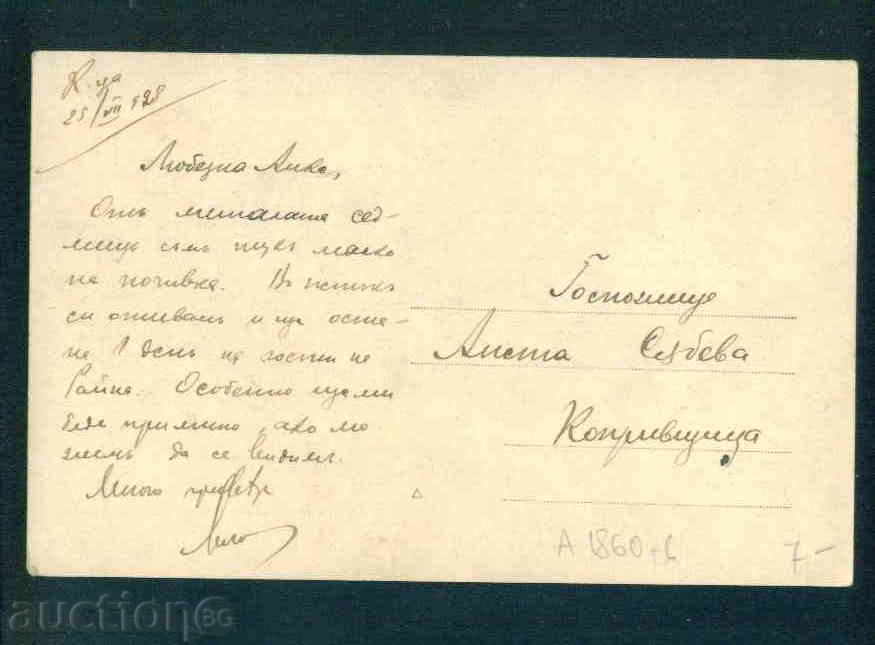 К-ца
25/VII 928
Любезна Анке,
Отъ миналата сед-
мица съмъ тукъ малко
на почивка. Въ петъкъ
си отивамъ и ще оста-
на 1 день на гости на
Райна. Особенно ще ми
бѫде приятно, ако мо
жемъ да се видимъ.
Много привети
Госпожица
Ангета
Копривщица
А 1860-6
7-
auction BG